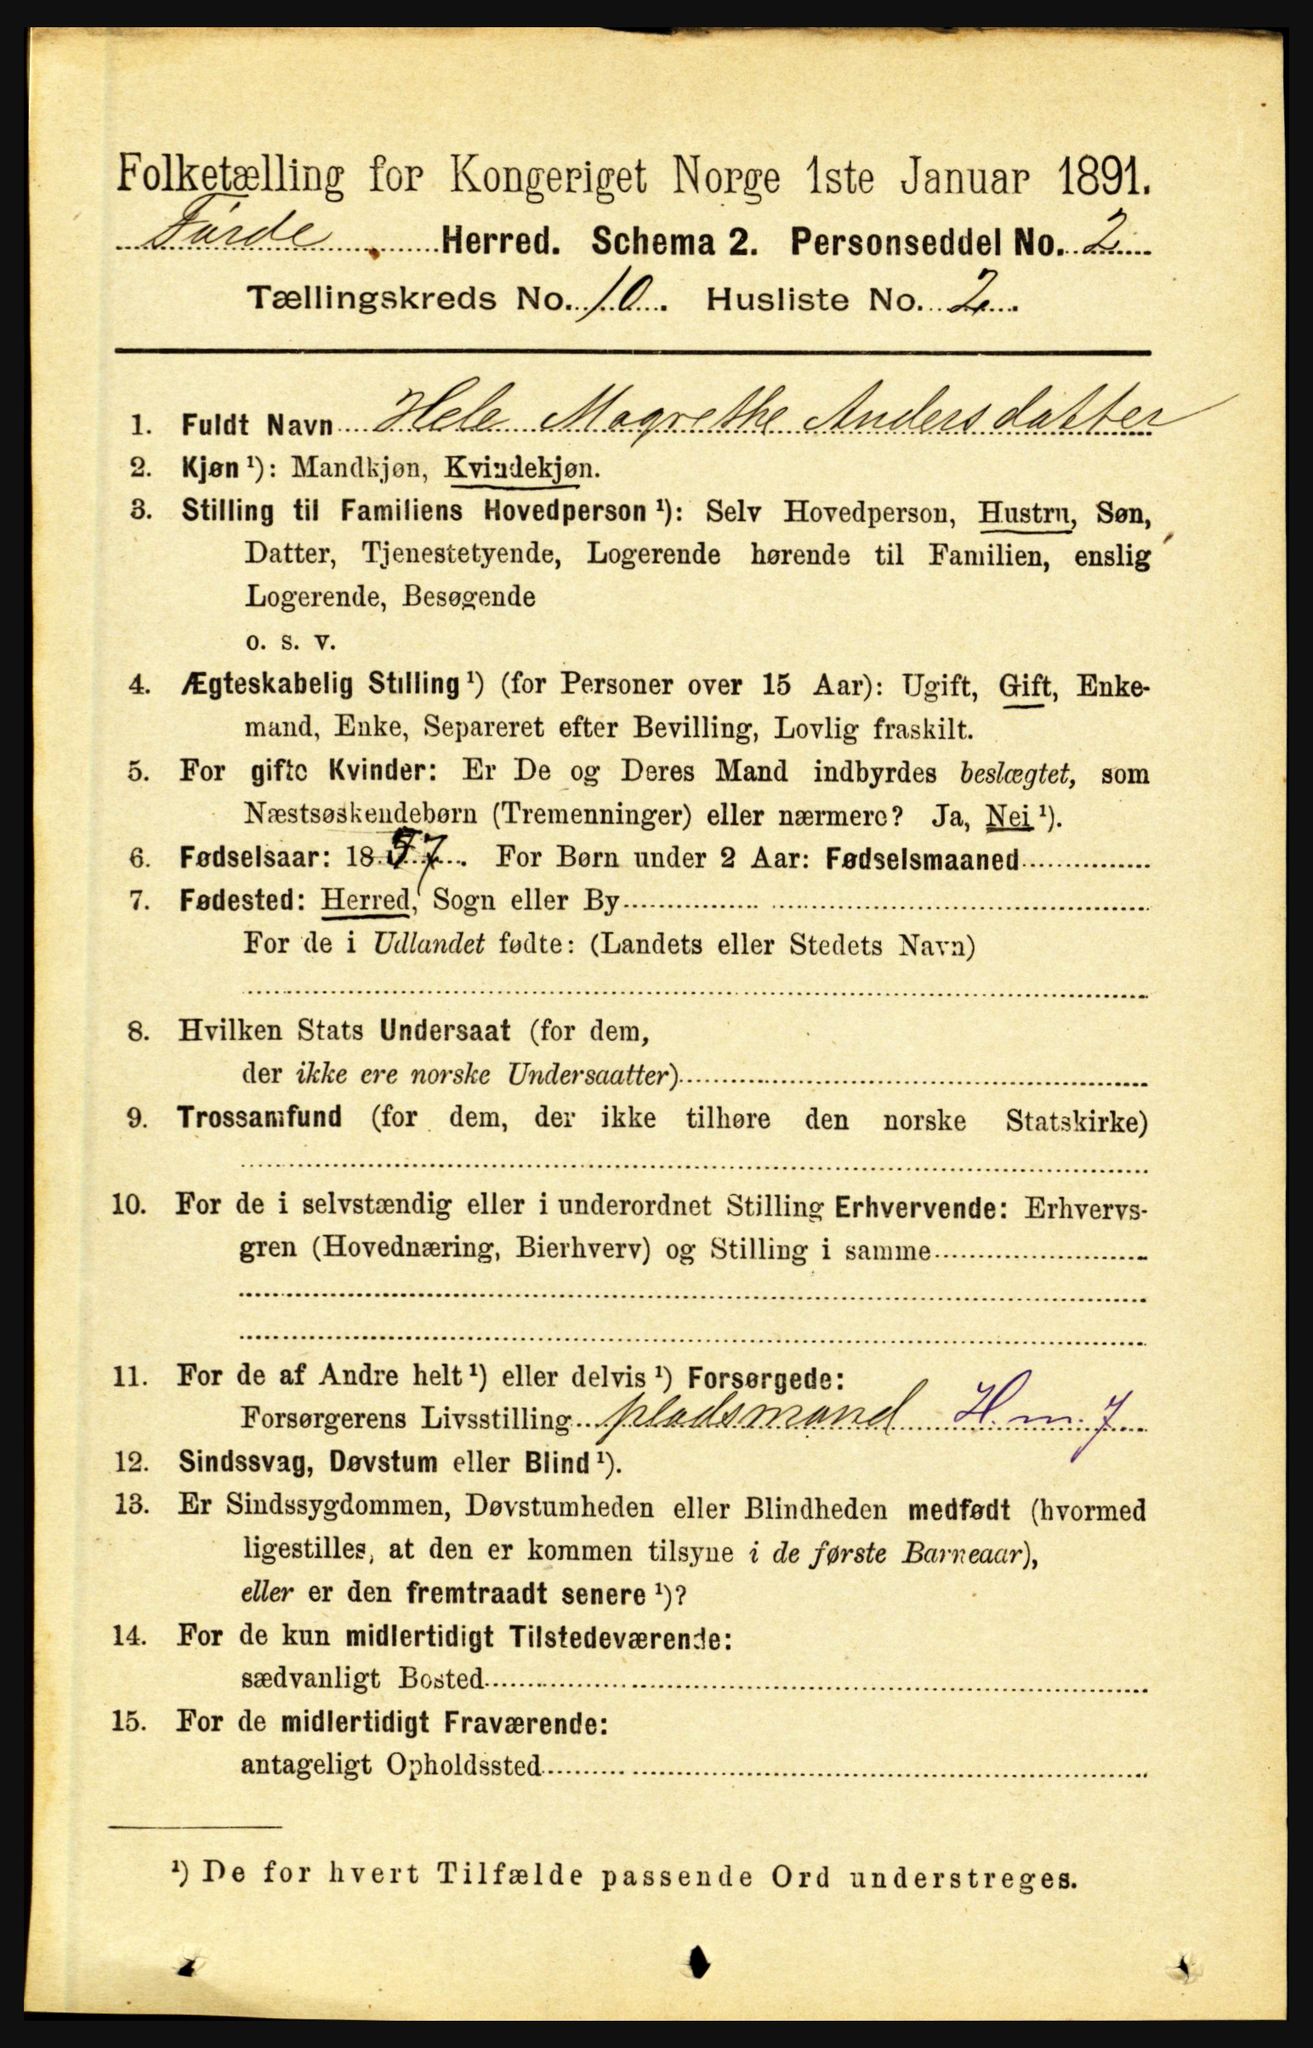 Folketælling for Kongeriget Norge 1ste Januar 1891.
Førde Herred. Schema 2. Personseddel No. 2
Tællingskreds No. 10. Husliste No. 2.
1. Fuldt Navn Hele Magrethe Andersdatter
2. Kjøn ¹): Mandkjøn, Kvindekjøn.
3. Stilling til Familiens Hovedperson ¹): Selv Hovedperson, Hustru, Søn,
Datter, Tjenestetyende, Logerende hørende til Familien, enslig
Logerende, Besøgende
o. s. v.
4. Ægteskabelig Stilling ¹) (for Personer over 15 Aar): Ugift, Gift, Enke-
mand, Enke, Separeret efter Bevilling, Lovlig fraskilt.
5. For gifte Kvinder: Er De og Deres Mand indbyrdes beslægtet, som
Næstsøskendebørn (Tremenninger) eller nærmere? Ja, Nei ¹).
6. Fødselsaar: 1857. For Børn under 2 Aar: Fødselsmaaned
7. Fødested: Herred, Sogn eller By
For de i Udlandet fødte: (Landets eller Stedets Navn)
8. Hvilken Stats Undersaat (for dem,
der ikke ere norske Undersaatter)
9. Trossamfund (for dem, der ikke tilhøre den norske Statskirke)
10. For de i selvstændig eller i underordnet Stilling Erhvervende: Erhvervs-
gren (Hovednæring, Bierhverv) og Stilling i samme
11. For de af Andre helt ¹) eller delvis ¹) Forsørgede:
Forsørgerens Livsstilling pladsmand H. m. 7
12. Sindssvag, Døvstum eller Blind ¹).
13. Er Sindssygdommen, Døvstumheden eller Blindheden medfødt (hvormed
ligestilles, at den er kommen tilsyne i de første Barneaar),
eller er den fremtraadt senere ¹)?
14. For de kun midlertidigt Tilstedeværende:
sædvanligt Bosted
15. For de midlertidigt Fraværende:
antageligt Opholdssted
¹) De for hvert Tilfælde passende Ord understreges.